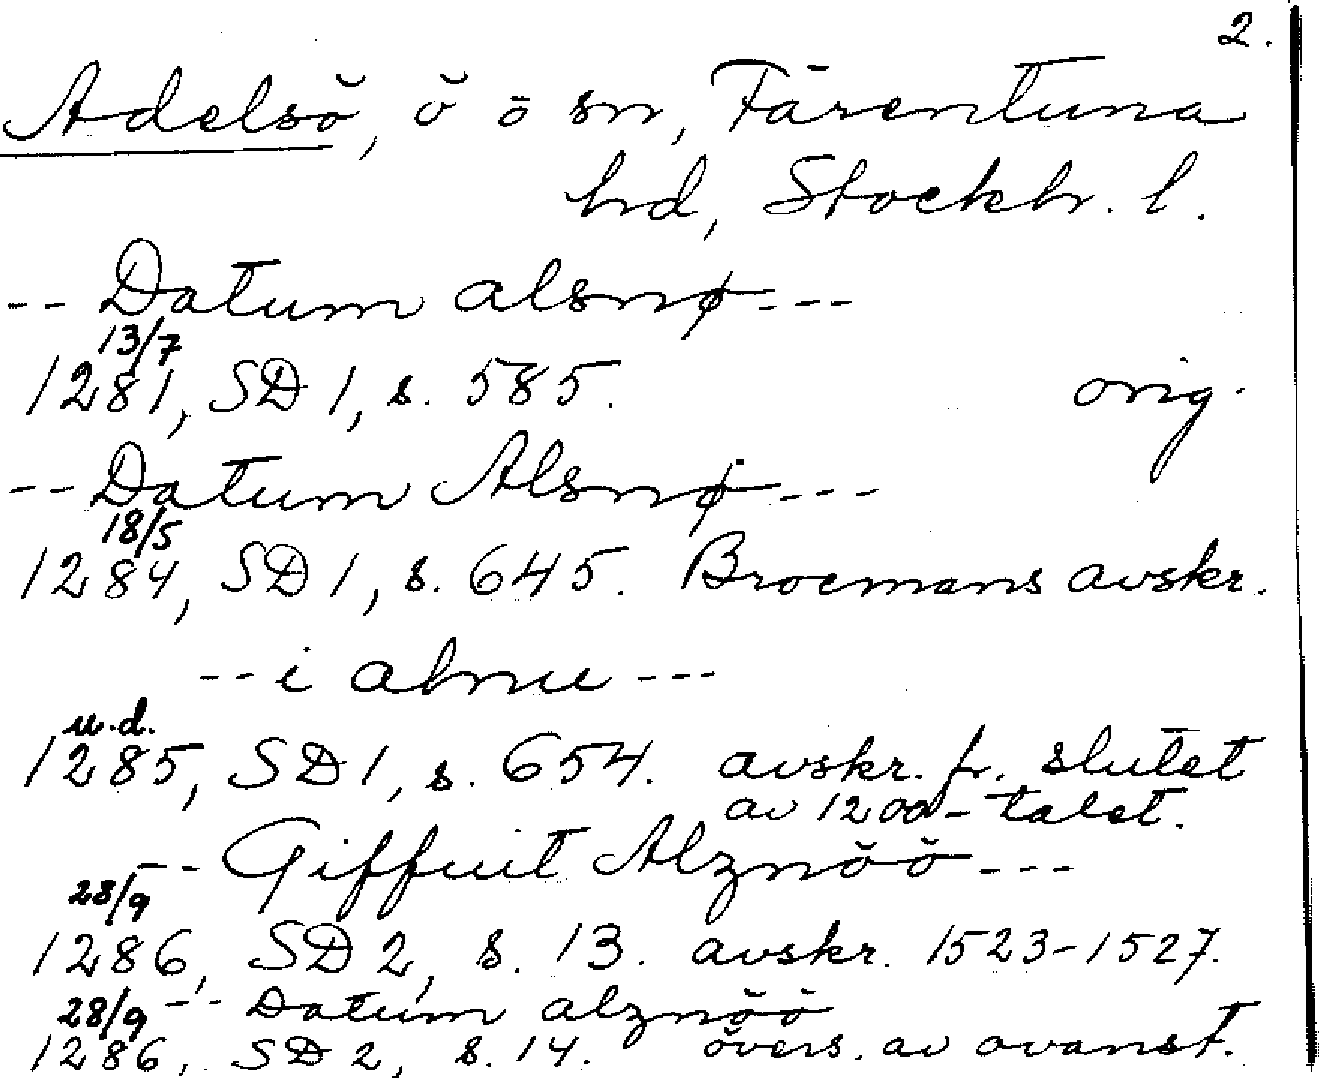 2.
Adelsö, ö o sn, Färentuna
hd, Stockh. l.
-- Datum alsnø ---
13/7
1281, SD 1, s. 585. orig.
-- Datum Alsnø ---
18/5
1284, SD 1, s. 645. Broemans avskr.
-- i alnu ---
u.d.
1285, SD 1, s. 654. avskr. fr. slutet
av 1200-talet.
-- Giffuit Alznöö ---
28/9
1286, SD 2, s. 13. avskr. 1523-1527.
28/9 --- Datum alznöö
1286, SD 2, s. 14. övers. av ovanst.